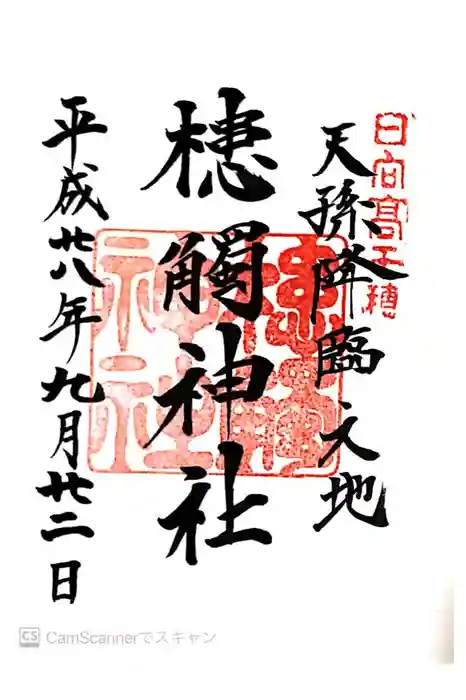 日向高千穂
天孫降臨之地
槵觸神社
平成廿八年九月廿二日
CS CamScannerでスキャン